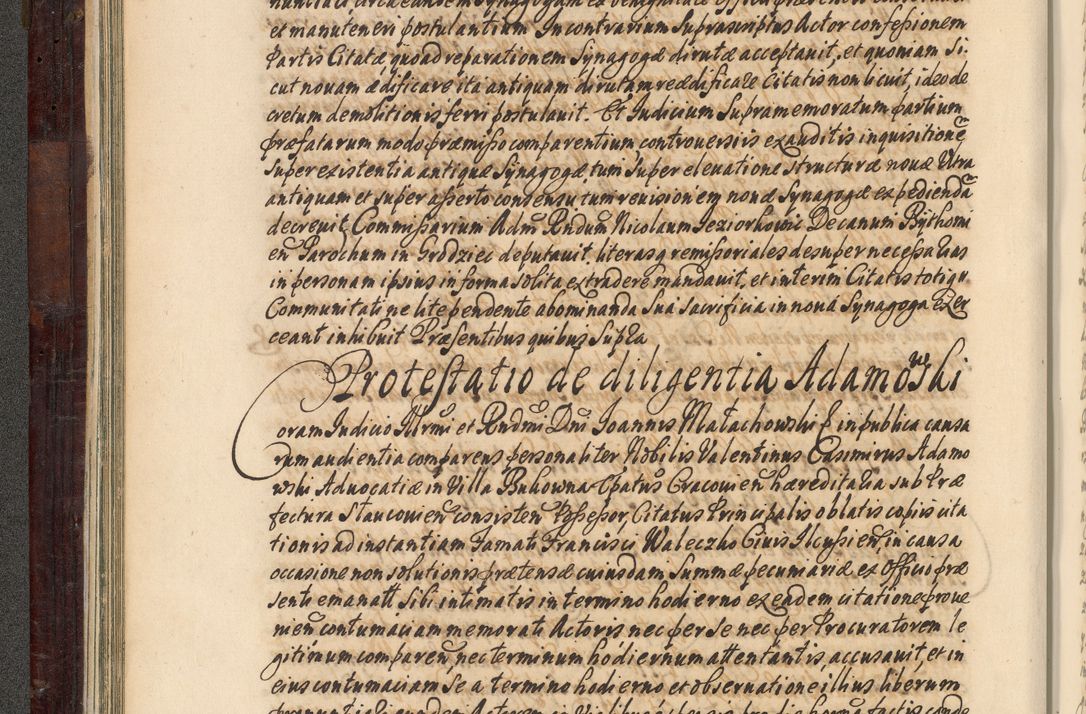 et manuteneri postulantium In contrarium Suprascriptus Actor confessionem
Partis Citatæ quoad reparationem Synagogæ dirutæ acceptauit, et quoniam Si:
cut nouam ædificare ita antiquam dirutam reædificare Citatis non licuit, ideo de
cretum demolitionis ferri postulauit. Et Judicium Supramemoratum partium
præfatarum modo præmisso comparentium controuersiis exauditis inquisitionem
super existentia antiquæ Synagogæ, tum super eleuatione structuræ nouæ Ultra
antiquam et super asserto consensu tum reuisionem nouæ Synagogæ expediendam
decreuit, Commissarium Adm Rndum Nicolaum Jeziorkowic Decanum Bythomi
en Parochum in Grodziec deputauit, literasq remissoriales desuper necessarias
in personam ipsius in forma solita extradere mandauit, et interim Citatis totiqu
Communitati ne lite pendente abominanda sua sacrificia in noua Synagoga Exer
ceant inhibuit Præsentibus quibus Supra
Protestatio de diligentia Adamowski
Coram Judicio Illrmi et Rndmi Dni Joannis Małachowski E in publica causa
rum audientia comparens personaliter Nobilis Valentinus Casimirus Adamo
wski Aduocatiæ in Villa Bukowna Epatus Cracouien hæreditaria sub Præ
fectura Slaucouien consisten Possessor, Citatus Principalis oblatis copiis cita
tionis ad instantiam Famati Francisci Waleczko Ciuis Ilcusien, in causa
occasione non solutionis prætensæ cuiusdam Summæ pecuniariæ ex Officio præ
senti emanatt sibi intimatis in termino hodierno ex eadem citatione proue
nien contumaciam memorati Actoris nec per se nec per Procuratorem le
gitimum comparen nec terminum hodiernum attentantis, accusauit, et in
eius contumaciam se a termino hodierno et obseruatione illius liberum